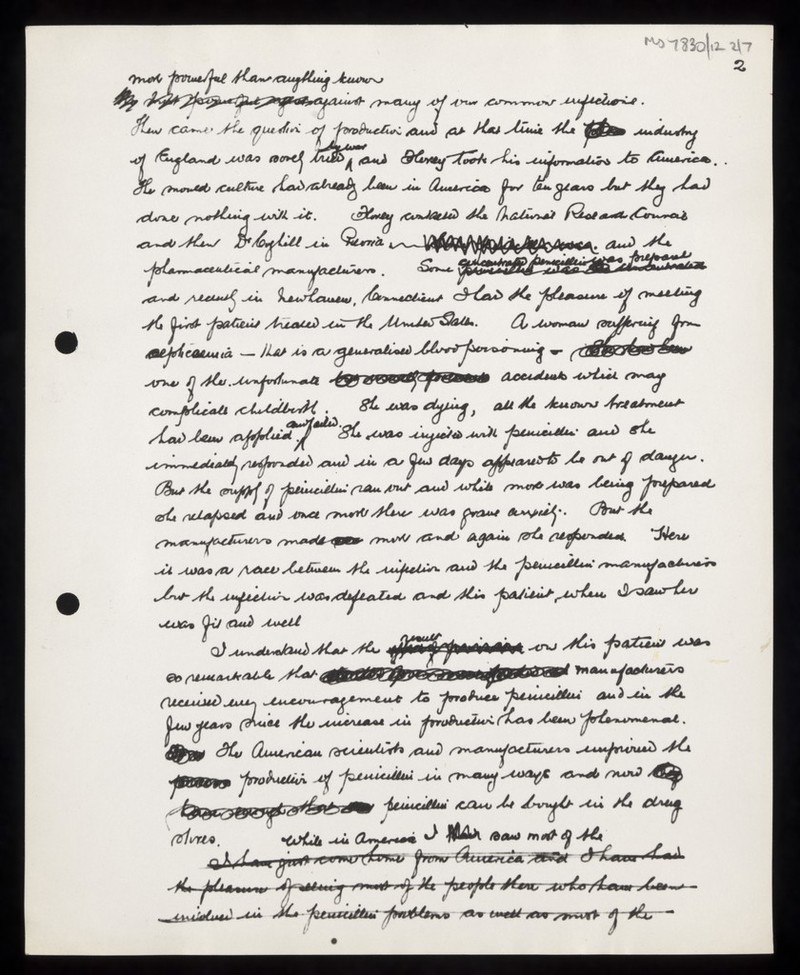 MS 7830/12 2/7
2
most powerful than anything known
against many of our common infections.
Then came the question of production and at that time the industry
of England was sorely tried by war and Florey took his information to America.
The mould culture had already been in America for ten years but they had
done nothing with it. Florey contacted the National Research Council
and then Dr Coghill in Peoria and the
pharmaceutical manufacturers. Some concentrated penicillin was prepared
and recently in Newhaven, Connecticut I had the pleasure of meeting
the first patient treated in the United States. A woman suffering from
septicaemia — that is a generalised blood poisoning -
one of the unfortunate accidents which may
complicate childbirth. She was dying, all the known treatment
had been applied and failed. She was injected with penicillin and she
immediately responded and in a few days appeared to be out of danger.
But the supply of penicillin ran out and while more was being prepared
she relapsed and once more there was grave anxiety. But the
manufacturers made more and again she responded. Here
it was a race between the infection and the penicillin manufacturers
but the infection was defeated and this patient, when I saw her
was fit and well
I understand that the result on this patient was
so remarkable that manufacturers
received every encouragement to produce penicillin and in the
few years since the increase in production has been phenomenal.
The American scientists and manufacturers improved the
production of penicillin in many ways and now
penicillin can be bought in the drug
stores. While in America I saw most of the
I have just come home from America and I have had
the pleasure of seeing most of the people there who have been
involved in the penicillin problems as well as most of the